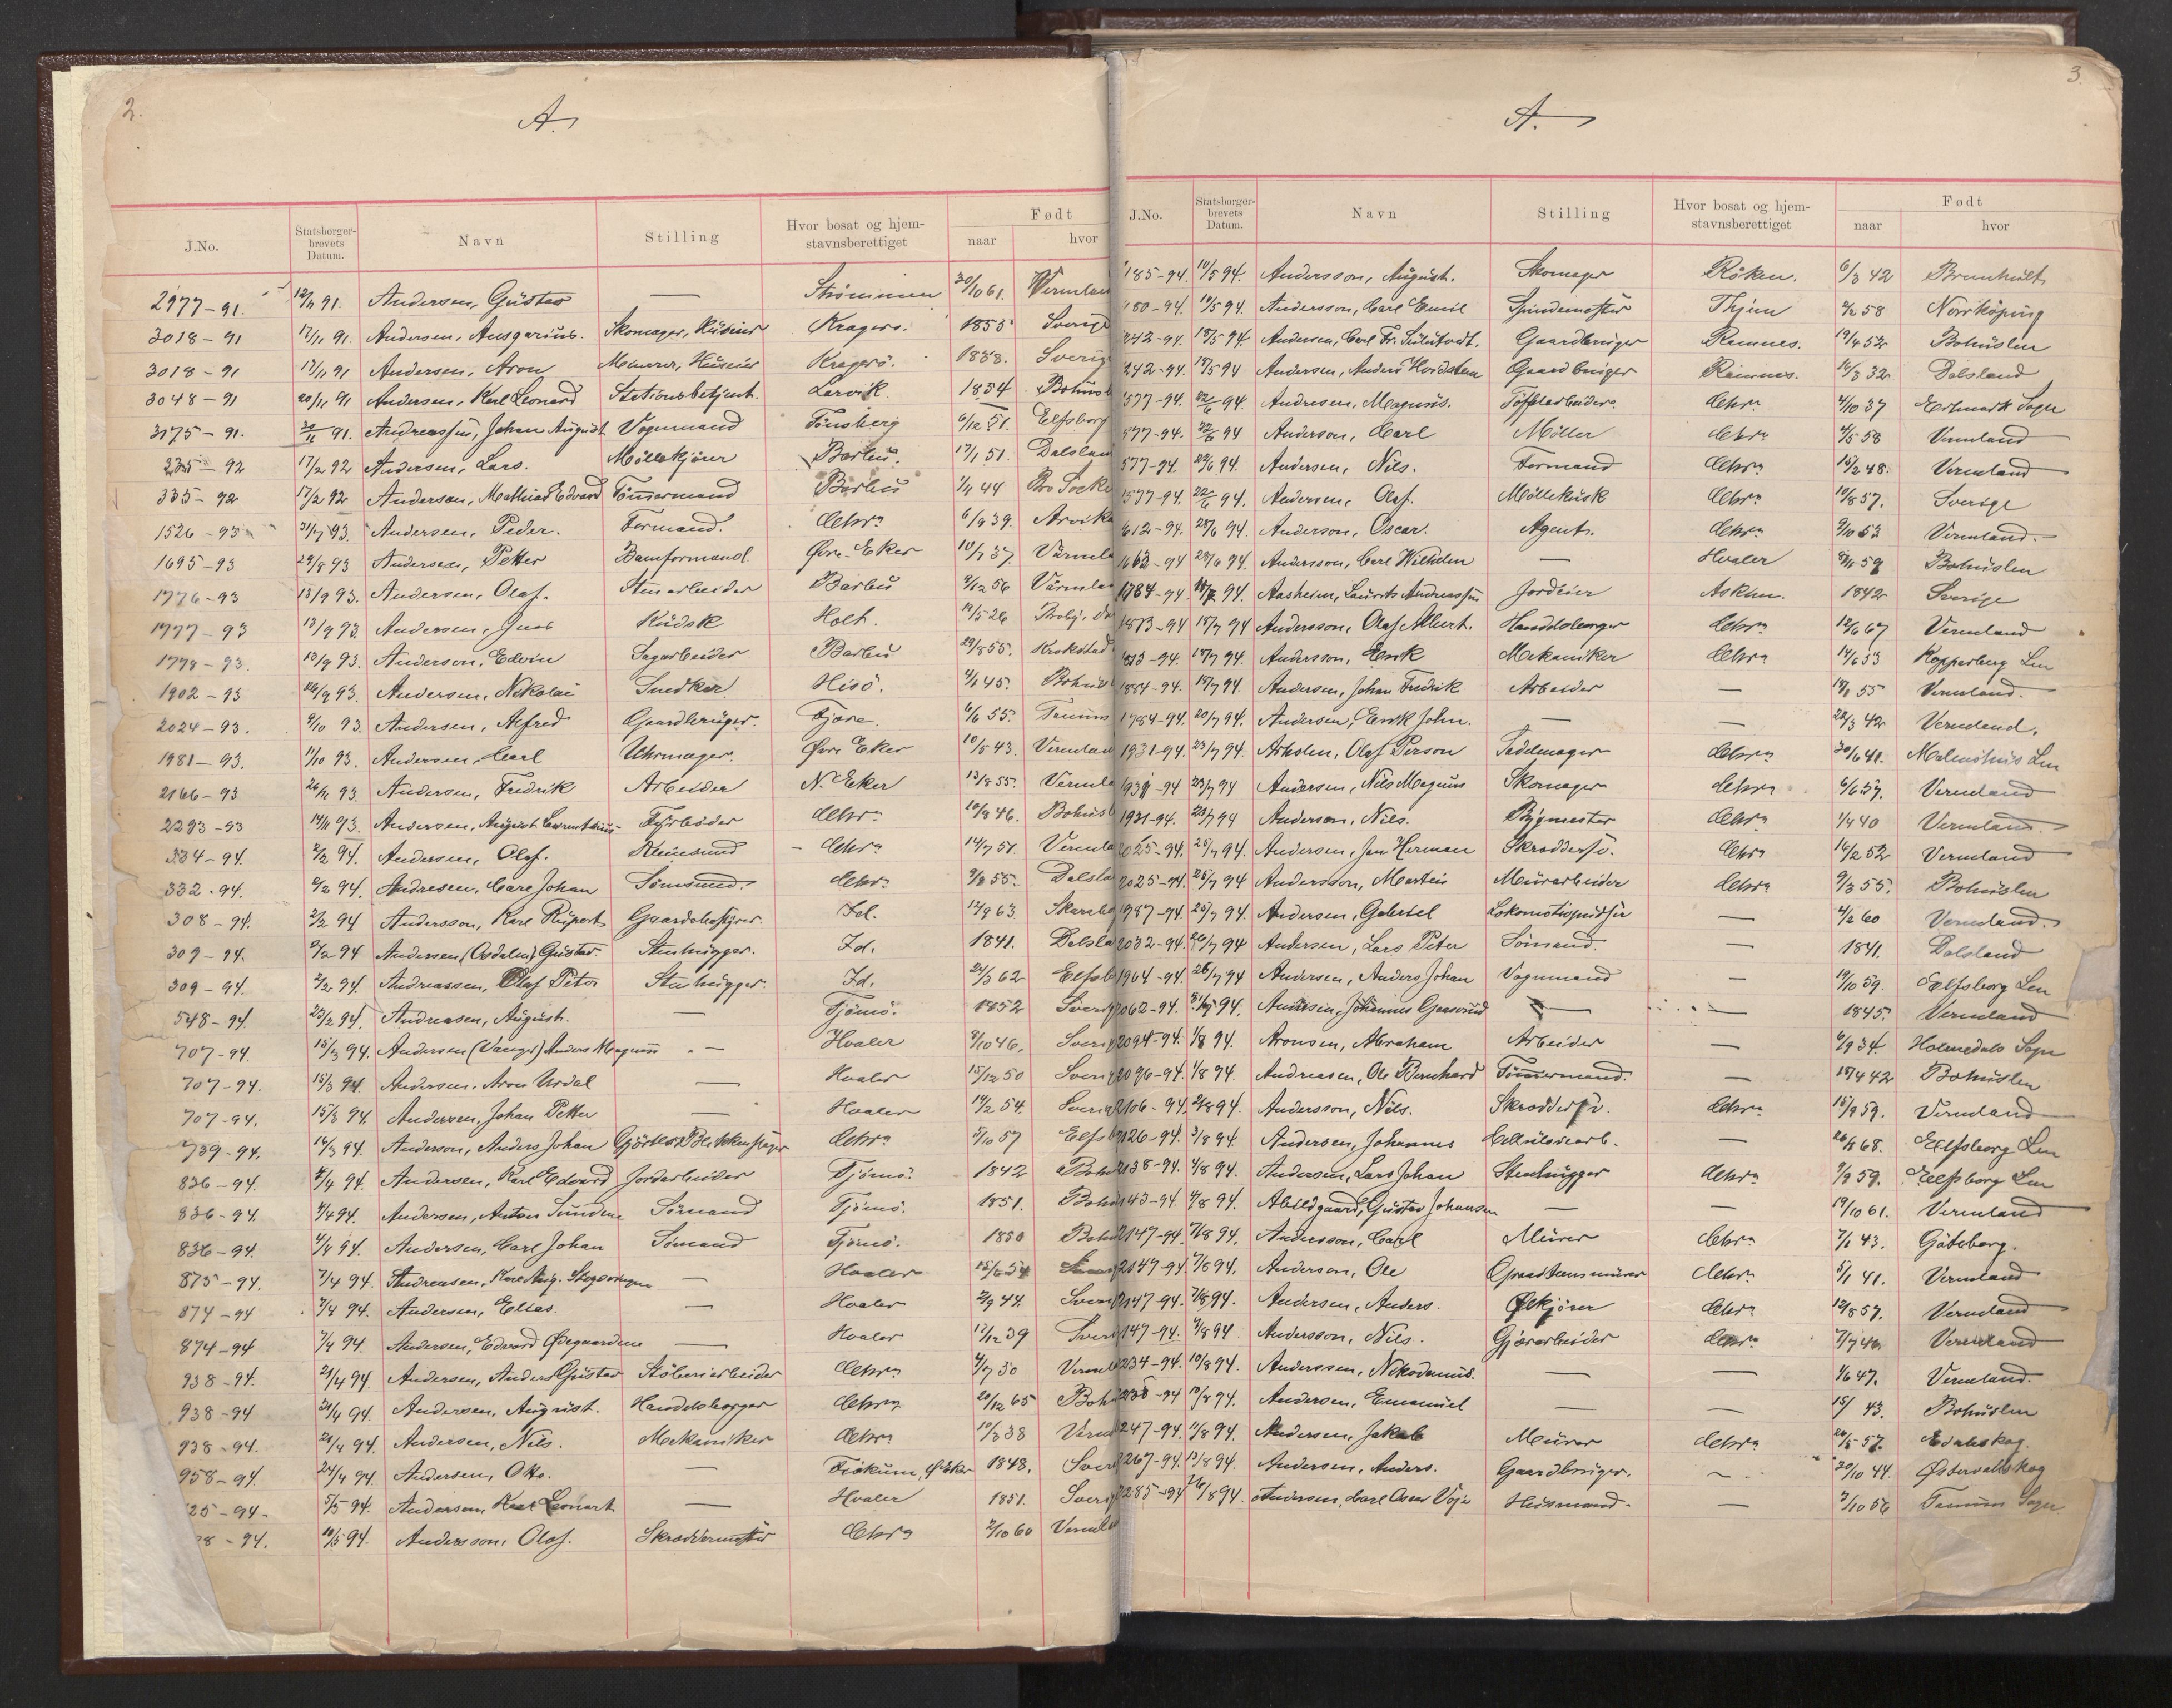 2.
A.
J.No. Statsborgerbrevets Datum. Navn Stilling Hvor bosat og hjemstavnsberettiget Født naar hvor
2977-91. 12/11 91. Andersen, Gustav — Strömmen 30/10 61. Vermlan
3018-91 17/11 91. Andersen, Ansgarius. Skomager, Huseier Kragerö. 1855 Sverig
3018-91 17/11 91 Andersen, Aron Murer, Huseier Kragerö. 1838. Sverig
3048-91 20/11 91 Andersen, Karl Leonard Stationsbetjent. Larvik. 1854 Bohusl
3175-91. 30/11 91. Andreassen, Johan August Vognmand Tönsberg 6/12 51. Elfsborg
335-92 17/2 92 Andersen, Lars. Möllekjörer Barbu. 17/1 51. Dalslan
335-92 17/2 92 Andersen, Mathias Edvard Tömmermand Barbu 1/4 44 Bro Socke
1526-93 31/7 93. Andersen, Peder. Formand. Chra 6/9 39. Arvika
1695-93 29/8 93 Andersen, Petter Bomformand. Övre Eker 10/7 37. Värmla
1776-93 13/9 93. Andersen, Olaf. Stenarbeider Barbu 9/12 56 Värmlan
1777-93 13/9 93. Andersen, Jens Kudsk Holt. 19/5 26
1778-93. 13/9 93. Anderson, Edvin Sagarbeider Barbu 29/8 55. Krokstad
1902-93 26/9 93. Andersen, Nikolai Snedker Hisö. 4/1 45. Bohus
2024-93. 9/10 93. Andersen, Alfred Gaardbruger. Fjære. 6/6 55. Tanum
1981-93. 11/10 93. Andersen, Carl Uhrmager. Övre Eker 10/5 43. Vermlan
2166-93 26/10 93. Andersen, Fredrik Arbeider N. Eker 13/8 55. Vermla
2293-93 14/11 93. Andersen, August Laurentius Fyrböder Chra 10/8 46. Bohusl
334-94. 2/2 94. Andersen, Olaf. Kleinsmed Chra 14/7 51. Vermla
332-94. 2/2 94. Andresen, Carl Johan Sömand. Chra 9/8 55. Dalsla
308-94. 2/2 94 Andersson, Karl Rupert Gaardsbestyrer. Id. 12/9 63. Skarabo
309-94. 2/2 94 Andersen (Osdalen) Gustav. Stenhugger. Id. 1841. Dalsla
309-94. 2/2 94. Andreassen, Olaf Peter Stenhugger. Id. 24/3 62 Elfsb
548-94. 23/2 94. Andreasen, August. — Tjömö. 1852 Sverig
707-94. 15/3 94. Andersen (Vauger) Anders Magnus — Hvaler 8/10 46. Sverig
707-94. 15/3 94. Andersen, Aron Urdal — Hvaler 15/12 50 Sverig
707-94. 15/3 94. Andersen, Johan Petter — Hvaler 14/2 54. Sverig
739-94. 16/3 94. Anderson, Anders Johan Gjörtler & Blikkenslager Chra 5/10 57 Elfsb
836-94. 4/4 94. Andersen, Karl Edvard Jordarbeider Tjömö. 1842 Bohu
836-94. 4/4 94. Andersen, Anton Sundene Sömand Tjömö. 1851. Bohu
836-94. 4/4 94. Andersen, Carl Johan Sömand Tjömö. 1850 Bohu
875-94. 7/4 94. Andreasen, Karl Aug. — Hvaler
874-94 7/4 94. Andersen, Elias. — Hvaler 2/9 44. Sverig
874-94 7/4 94. Andersen, Edvard Ödegaardene — Hvaler 17/12 39 Sveri
938-94. 21/4 94. Andersen, Anders Gustav Stöberiarbeider Chra 4/7 30 Verml
938-94 21/4 94. Andersen, August. Handelsborger Chra 20/12 65 Bohu
938-94. 21/4 94. Andersen, Nils. Mekaniker Chra 10/3 38 Verm
958-94. 24/4 94. Andersen, Otto. — Fiskum, Ö. Eker 1848. Sveri
25-94- 5/5 94. Andersen Karl Leonart — Hvaler 1851. Sverig
8-94. 10/5 94. Andersson, Olof. Skræddermester Chra 2/10 60 Vermla
3.
A.
J.No. Statsborgerbrevets Datum. Navn Stilling Hvor bosat og hjemstavnsberettiget Født naar hvor
185-94. 10/5 94. Andersson, August. Skomager Röken. 6/3 42
180-94. 10/5 94. Andersson, Carl Emil Spindemester Thjem 2/2 58 Norrköping
242-94. 18/5 94. Andersen, Carl Fr. Gaardbruger Ramnes. 19/4 52 Bohuslen
242-94. 18/5 94 Andersen, Anders Hvidsten Gaardbruger Ramnes. 16/3 32 Dalsland
577-94. 22/6 94. Andresen, Magnus. Töffelarbeider Chra 4/10 37 Edsmark Sogn
577-94. 22/6 94 Anderson, Carl Möller Chra 4/5 58 Vermland
577-94. 22/6 94. Andersen, Nils. Formand Chra 15/2 48. Vermland
1577-94. 22/6 94. Andersen, Olaf. Möllekusk Chra 10/8 57. Sverige
612-94. 28/6 94. Anderson, Oscar. Agent. Chra 9/10 63 Vermland.
1663-94 28/6 94. Andersson, Carl Wilhelm — Hvaler Bohuslen
1784-94 94. Aasheim, Laurits Andreassen Jordeier Asker. 1842 Sverige
1813-94 18/7 94 Andersson, Olaf Albert. Handelsborger Chra 12/6 67 Vermland
1813-94. 18/7 94. Andersson, Erik Mekaniker Chra 14/6 53 Kopparberg Len
1884-94. 18/7 94. Andersen, Johan Fredrik Arbeider — 18/1 55 Vermland.
1784-94. 20/7 94. Andersen, Erik John. — — 22/3 42 Vermland.
1931-94. 23/7 94. Arhslen, Olof Person Sadelmager Chra 30/6 41. Malmöhus Len
1931-94 23/7 94 Andersen, Nils Magnus Skomager Chra 6/6 37. Vermland
1931-94. 23/7 94 Anderson, Nils. Bygmester Chra 1/4 40 Vermland.
2025-94. 25/7 94. Andersen, Jan Herman Skræddersv. Chra 16/2 52 Vermland
2025-94. 25/7 94 Andersson, Martin Murarbeider Chra 9/3 55. Bohuslen
1987-94. 25/7 94. Andersen, Gabriel Lokomotivpudser — 4/2 60 Vermland.
2032-94. 26/7 94 Andersen, Lars Peter Sömand. — 1841. Dalsland
1964-94. 26/7 94 Andersen, Anders Johan Vognmand — 19/10 59. Elfsborg Len
2062-94. 31/7 94. Andersen, Johannes Gaasvend — — 1845. Vermland
2094-94. 1/8 94. Aronsen, Abraham Arbeider — 6/9 34. Holmedals Sogn
2096-94. 1/8 94. Andreasen, Ole Bernhard Tömmermand. — 18/4 42 Bohuslen
2106-94. 2/8 94. Andersson, Nils. Skræddersv. Chra 15/9 59. Vermland
2126-94. 3/8 94. Andersen, Johannes Cellulosearb. — 26/1 68. Elfsborg Len
2138-94. 4/8 94. Andersen, Lars Johan Stenhugger Chra 9/9 59. Elfsborg Len
2143-94. 4/8 94. Abildgaard, Gustav Johansen — — 19/10 61. Vermland
2147-94. 7/8 94. Andersson, Carl Murer Chra 7/1 43. Göteborg.
2147-94. 7/8 94. Anderson, Ole Chra 5/1 41. Vermland
2147-94. 7/8 94. Andersen, Anders. Ölkjörer Chra 12/8 57. Vermland
2147-94. 7/8 94. Andersson, Nils. Gjærarbeider Chra 7/7 46. Vermland
2234-94. 10/8 94. Anderssen, Nikodemus. — — 1/6 47. Vermland.
2235-94 10/8 94. Andersen, Emanuel — — 15/ 43. Bohuslen
2247-94. 11/8 94. Andersen, Jakob Murer Chra 20/5 57. Edaleskog.
2267-94. 13/8 94. Andersen, Anders. Gaardbruger. — 30/10 44. Östervallskog
2285-94 16/8 94. Andersen, Carl Oscar Voje Husmand. — 3/10 56 Tanum Sogn